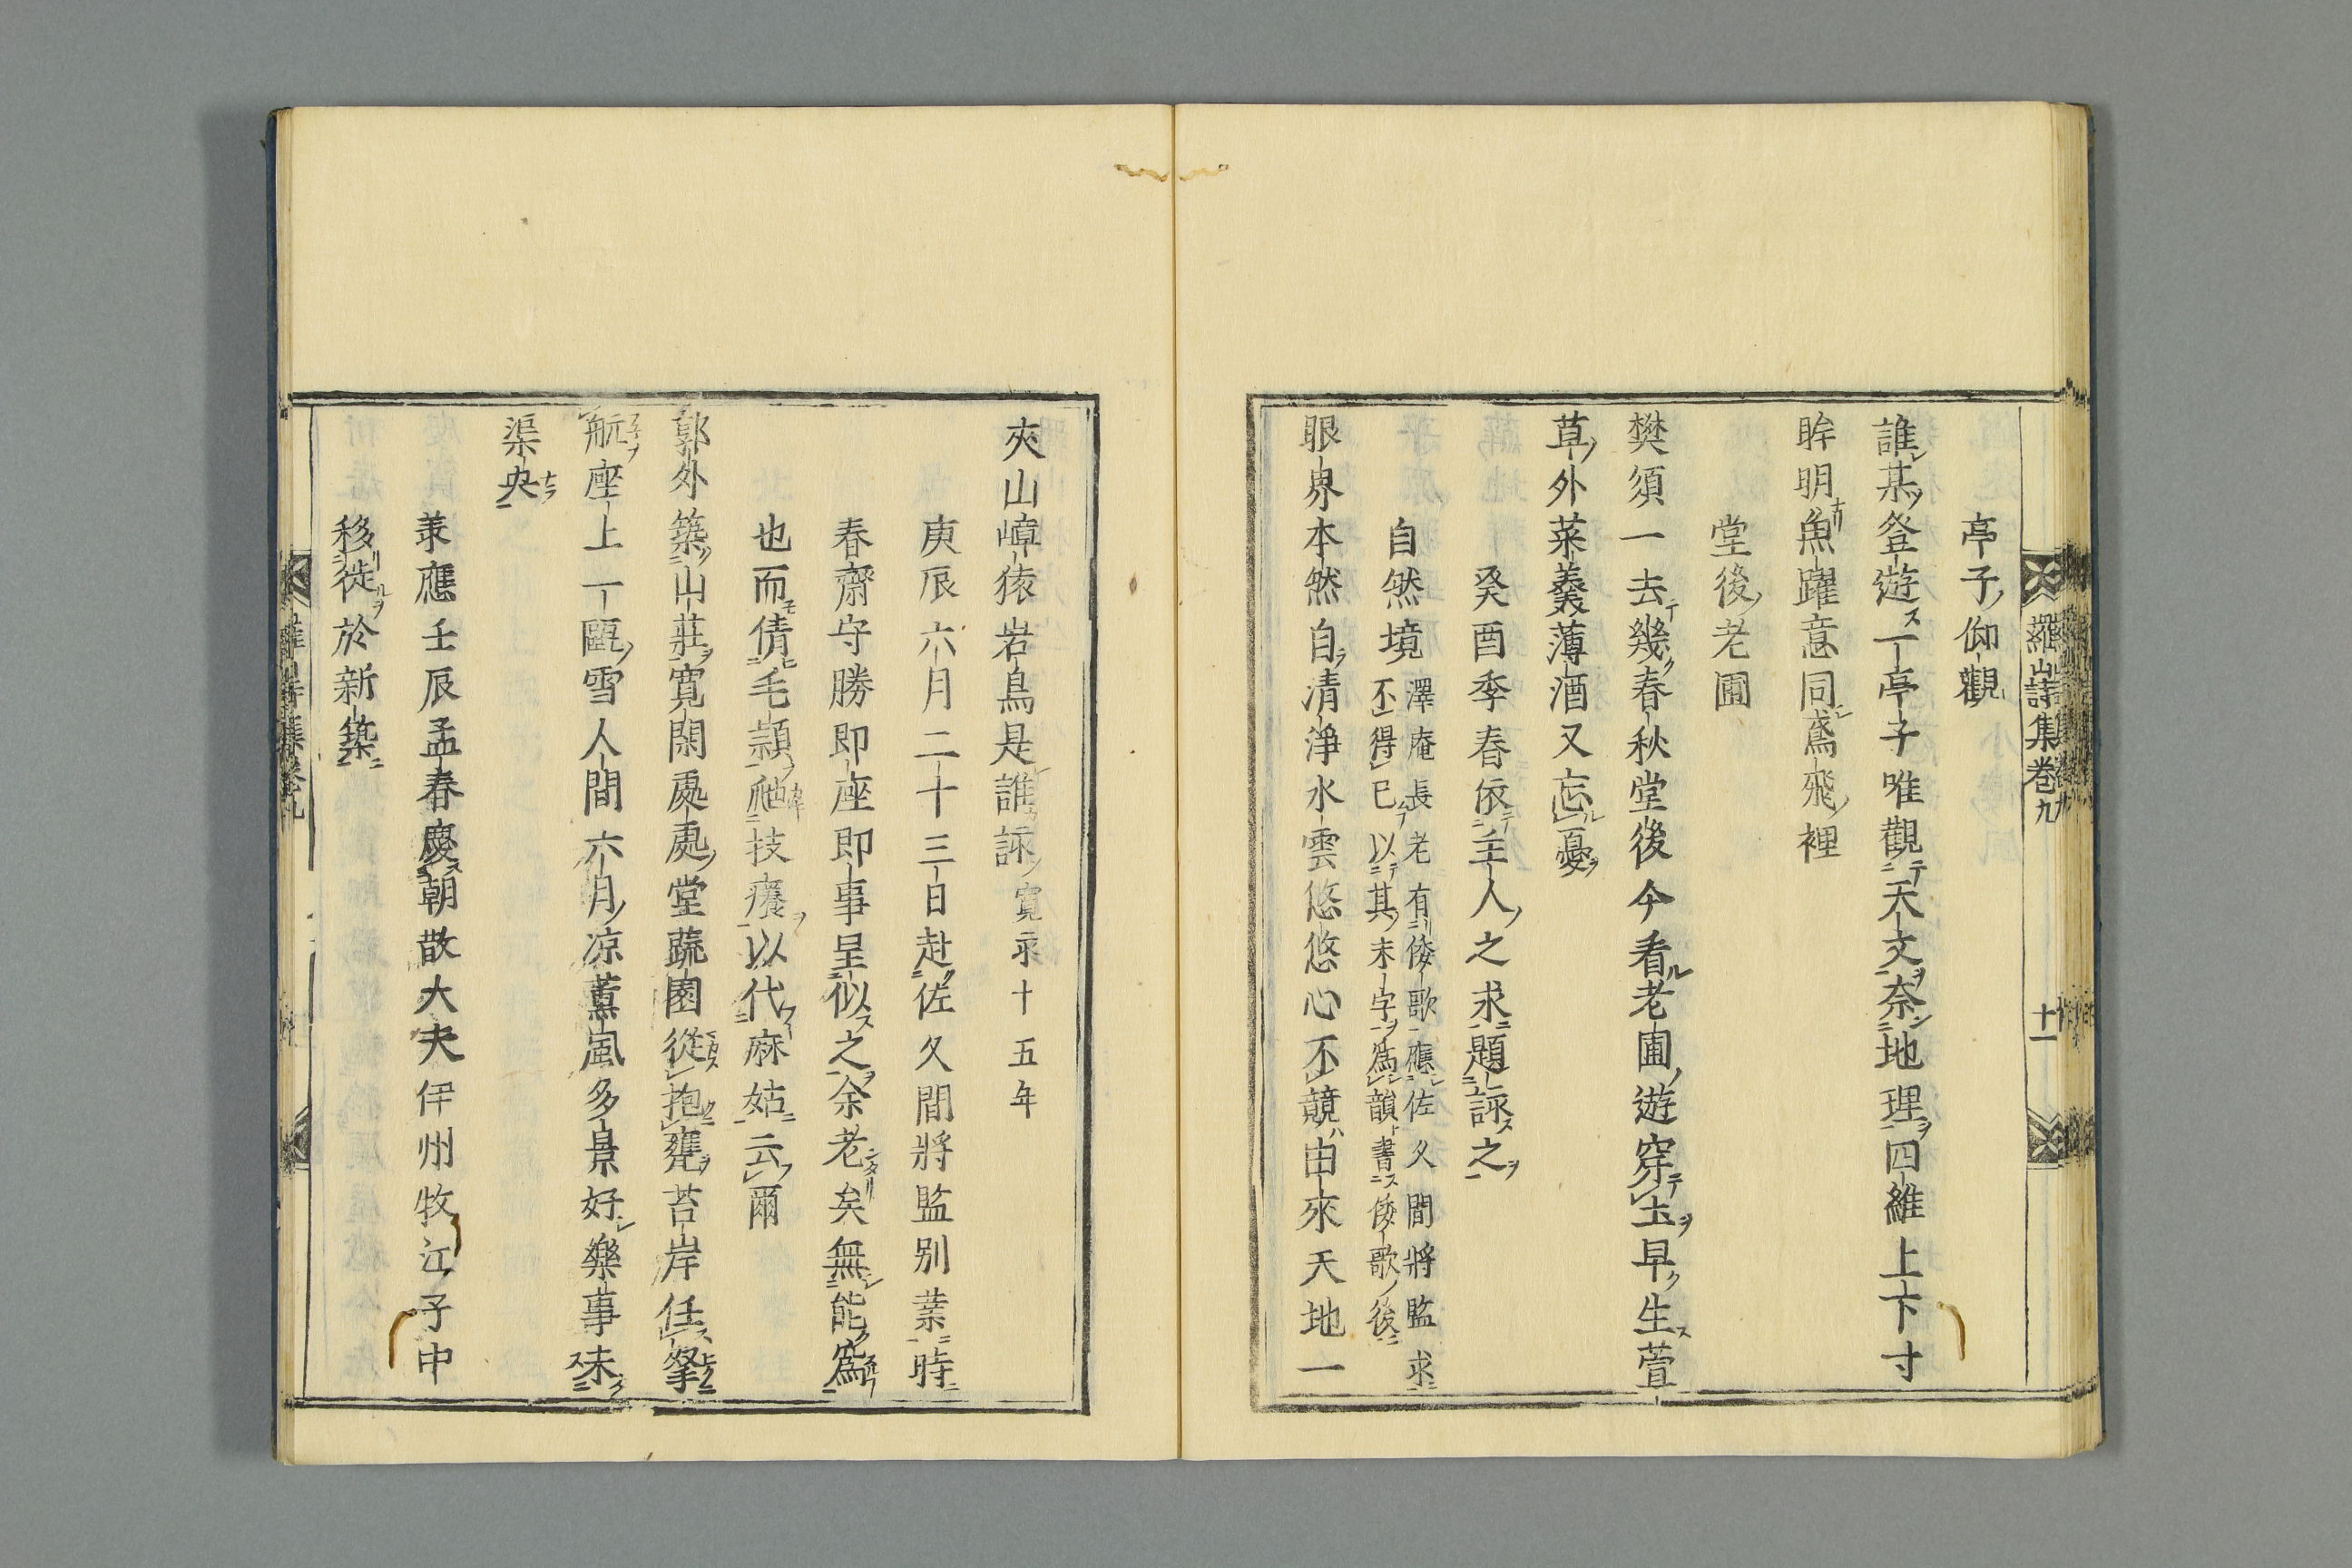 羅山詩集卷九
十一
亭子仰觀
誰某登遊一亭子唯觀天文奈地理四維上下寸
眸明魚躍意同鳶飛裡
堂後老圃
樊須一去幾春秋堂後今看老圃遊穿土早生萱
草外菜羹薄酒又忘憂
癸酉季春依主人之求題詠之
自然境
澤庵長老有倭歌應佐久間將監求
不得已以其末字為韻書倭歌後
眼界本然自清淨水雲悠悠心不競由來天地一
夾山嶂猿岩鳥是誰詠寬永十五年
庚辰六月二十三日赴佐久間將監別業時
春齋守勝即座即事呈似之余老矣無能為
也而倩毛穎爬技癢以代麻姑云爾
郭外築山莊寬閑處處堂蔬園從抱甕苔岸任拏
航座上一甌雪人間六月凉薰風多景好樂事未
渠央
兼應壬辰孟春慶朝散大夫伊州牧江子中
移徙於新築